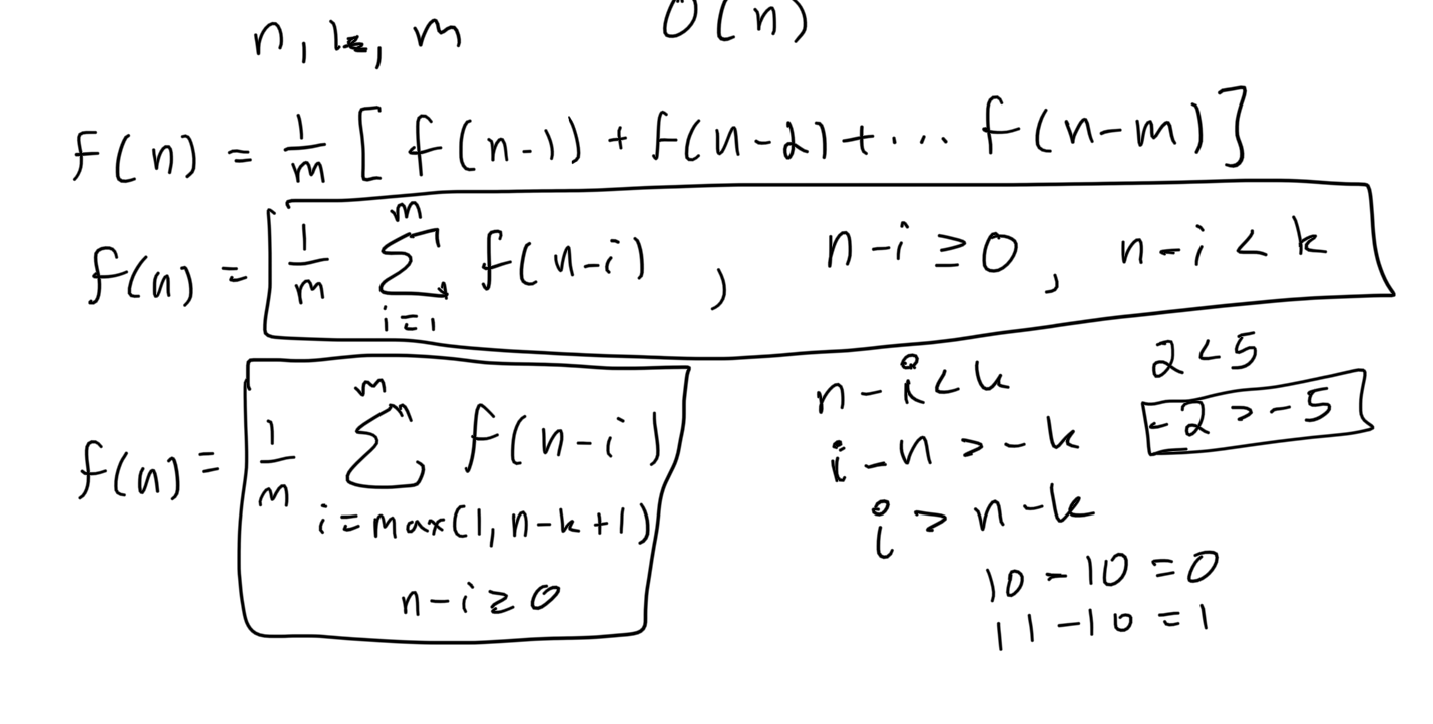 n, k, m
O(n)
f(n) = 1/m [ f(n-1) + f(n-2) + ... f(n-m) ]
f(n) = 1/m ∑_{i=1}^{m} f(n-i) , n-i ≥ 0, n-i < k
f(n) = 1/m ∑_{i=max(1, n-k+1)}^{m} f(n-i)
n-i ≥ 0
n-i < k
i-n > -k
i > n-k
10 - 10 = 0
11 - 10 = 1
2 < 5
-2 > -5